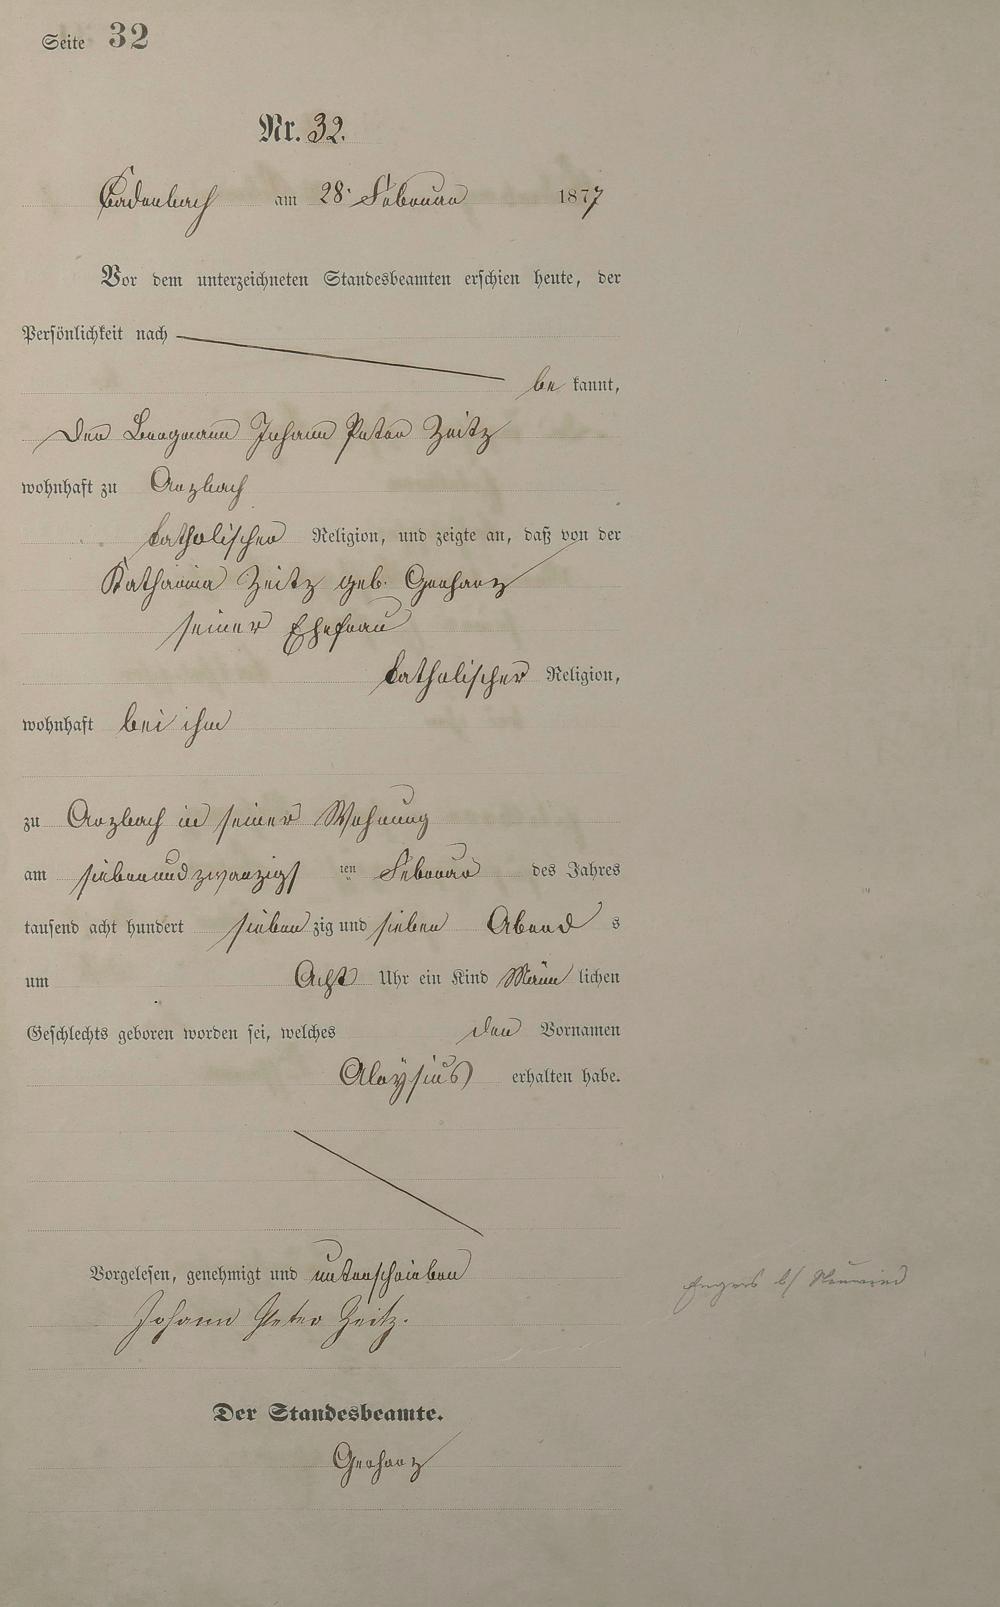 Seite 32
Nr. 32.
Cadenbach am 28. Februar 1877
Vor dem unterzeichneten Standesbeamten erschien heute, der
Persönlichkeit nach
be kannt,
den Bergmann Johann Peter Zeitz
wohnhaft zu Arzbach
katholischer Religion, und zeigte an, daß von der
Katharina Zeitz geb. Gerharz
seiner Ehefrau
katholischer Religion,
wohnhaft bei ihm
zu Arzbach in seiner Wohnung
am siebenundzwanzigs ten Februar des Jahres
tausend acht hundert sieben zig und sieben Abend s
um Acht Uhr ein Kind Männ lichen
Geschlechts geboren worden sei, welches den Vornamen
Aloysius erhalten habe.
Vorgelesen, genehmigt und unterschrieben
Johann Peter Zeitz.
Engers b/ Neuwied
Der Standesbeamte.
Gerharz